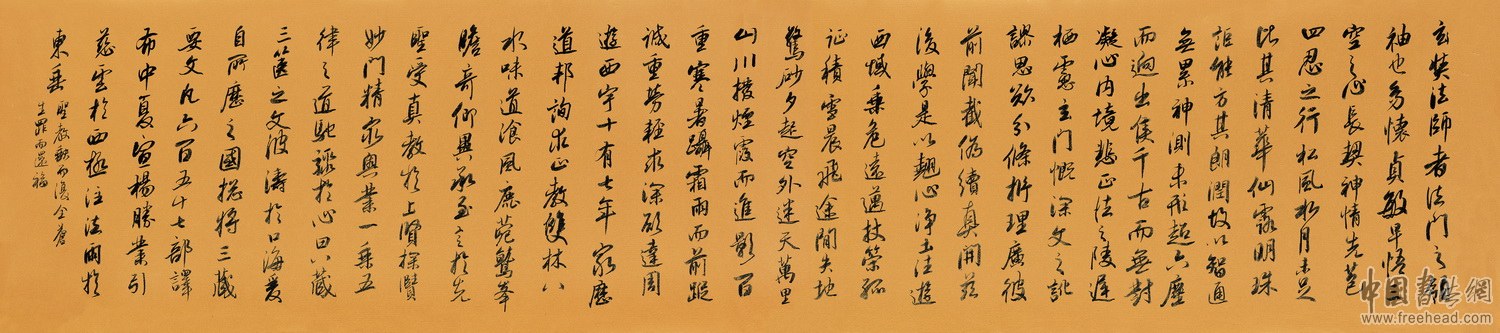 玄奘法師者法門之領
袖也幼懷貞敏早悟三
空之心長契神情先苞
四忍之行松風水月未足
比其清華仙露明珠
詎能方其朗潤故以智通
無累神測未形超六塵
而迥出隻千古而無對
凝心內境悲正法之陵遲
栖慮玄門慨深文之訛
謬思欲分條析理廣彼
前聞截偽續真開茲
後學是以翹心淨土往遊
西域乘危遠邁杖策孤
征積雪晨飛途間失地
驚砂夕起空外迷天萬里
山川撥煙霞而進影百
重寒暑躡霜雨而前蹤
誠重勞輕求深願達周
遊西宇十有七年窮歷
道邦詢求正教雙林八
水味道湌風鹿菀鷲峯
瞻奇仰異承至言於先
聖受真教於上賢探賾
妙門精窮奧業一乘五
律之道馳驟於心田八藏
三篋之文波濤於口海爰
自所歷之國摠將三藏
要文凡六百五十七部譯
布中夏宣楊勝業引
慈雲於西極注法雨於
東垂聖教缺而復全蒼
生罪而還福
中國書法網
www.freehead.com